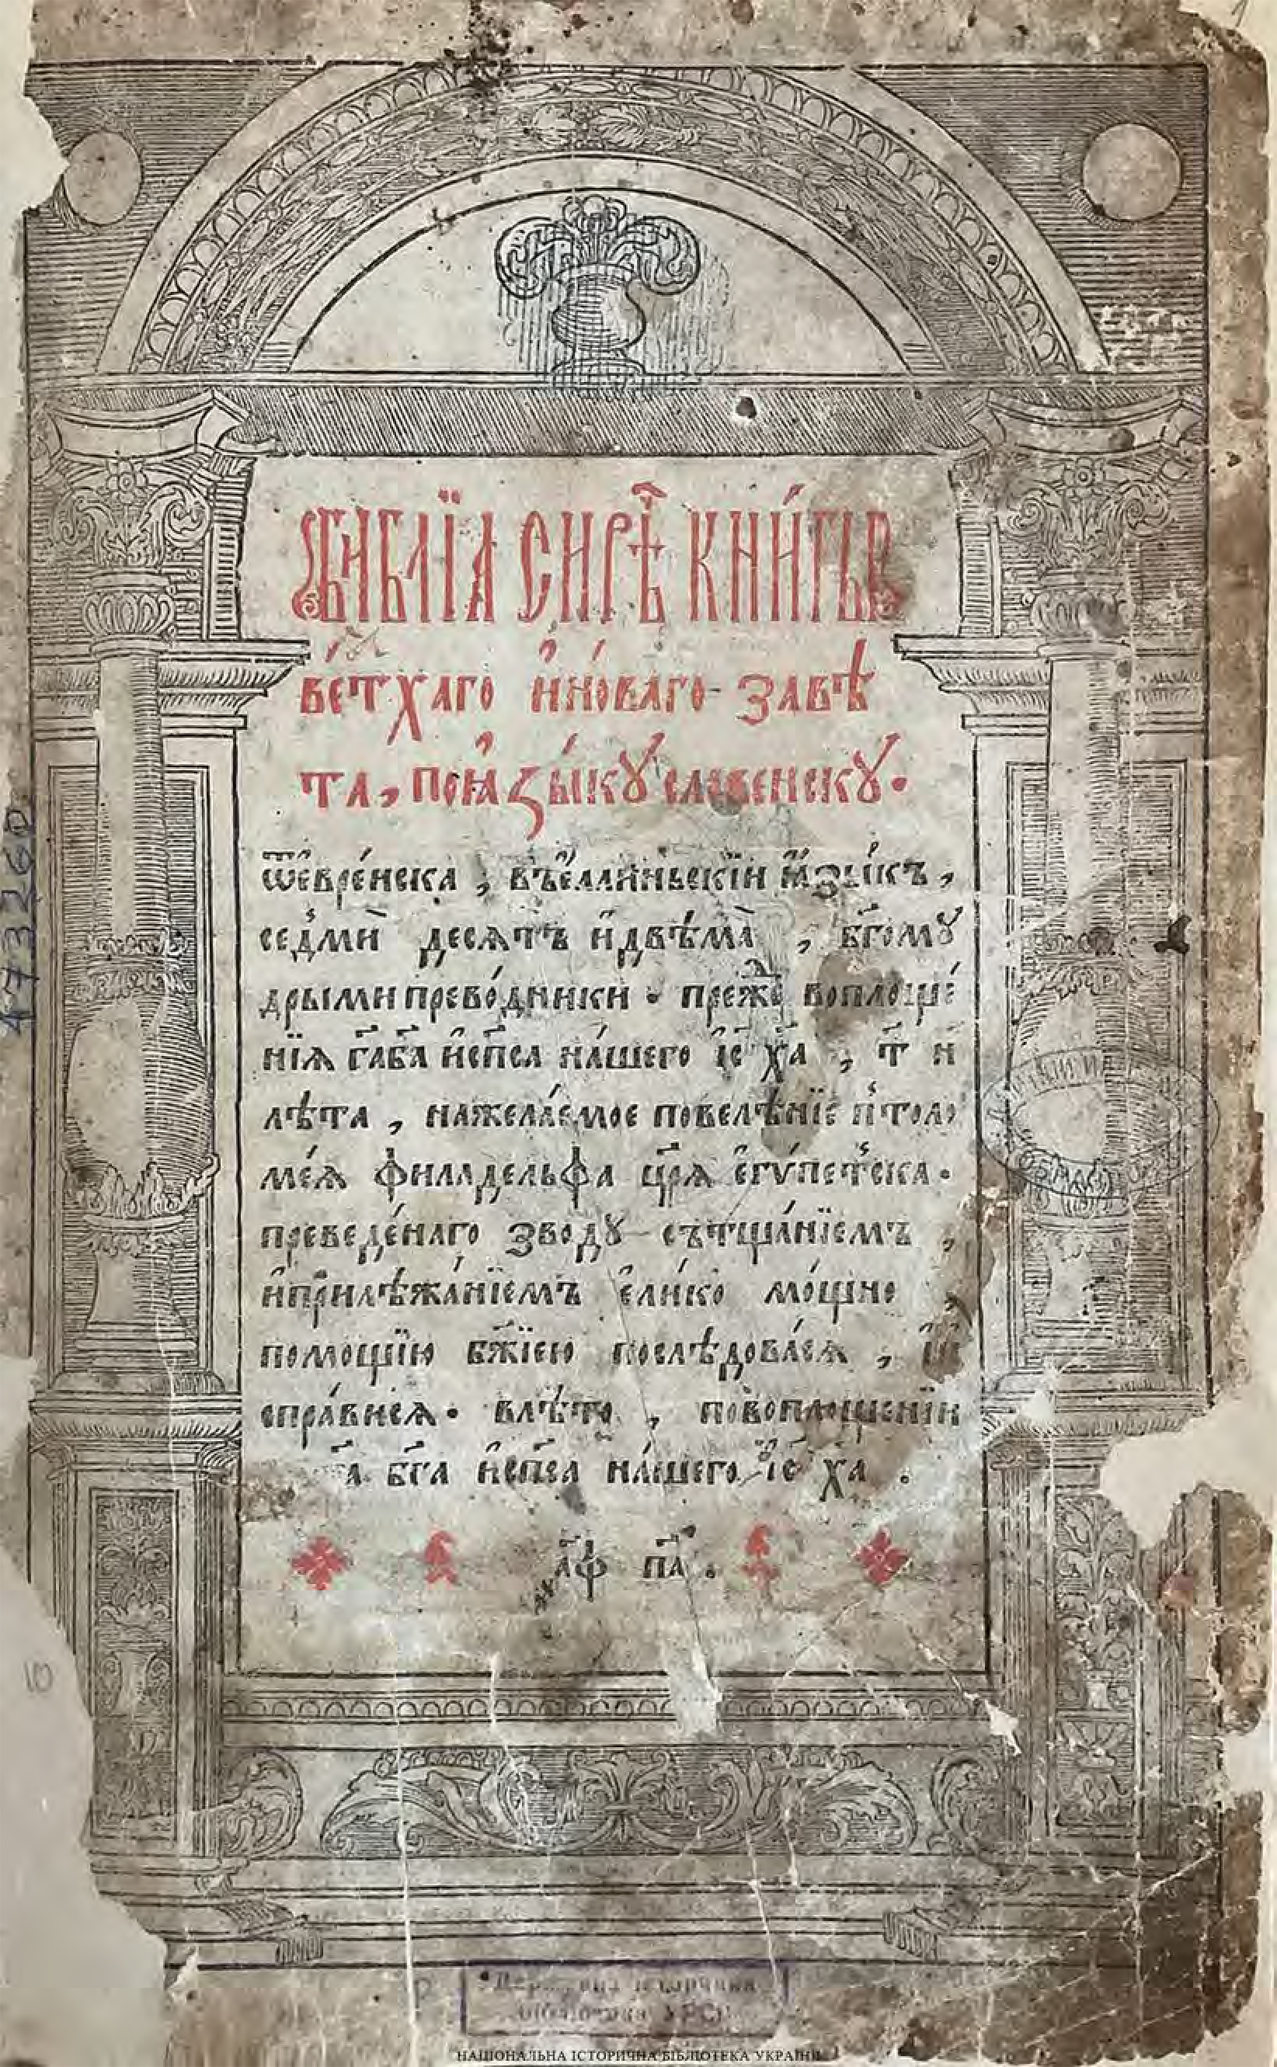 БИБЛЇА СИРѢ̾ КНИ́ГЫ
ВЕ́ТХАГО И҆НО́ВАГО ЗАВѢ
ТА, ПОІ̯АЗЫ́КУ СЛОВЕНСКУ.
ѿе҆вре́йска, въе҆ллиньскїй ꙗ҆зы́къ,
седми десѧтъ и҆двѣма, бг҃ому
дрыми преводники. преж воплоще́
нїѧ га҃ ба҃ и҆сп҃са на́шего і҆с ха҃, т҃ и
лѣта, нажела́емое повелѣнїе птоло
ме́ѧ филаделфа цр҃ѧ е҆гѵпетска.
преведе́наго зводу сътща́нїемъ,
и҆прилѣжа́нїемъ е҆ли́ко мо́щно
помощїю бж҃їею послѣдовасѧ, и҆
спра́висѧ. влѣто,повоплощенїи
га҃ бг҃а и҆сп҃са на́шего і҆с ха҃.
҂аф па҃.
473260
10
1
Державна історична
бібліотека УРСР
НАЦІОНАЛЬНА ІСТОРИЧНА БІБЛІОТЕКА УКРАЇНИ